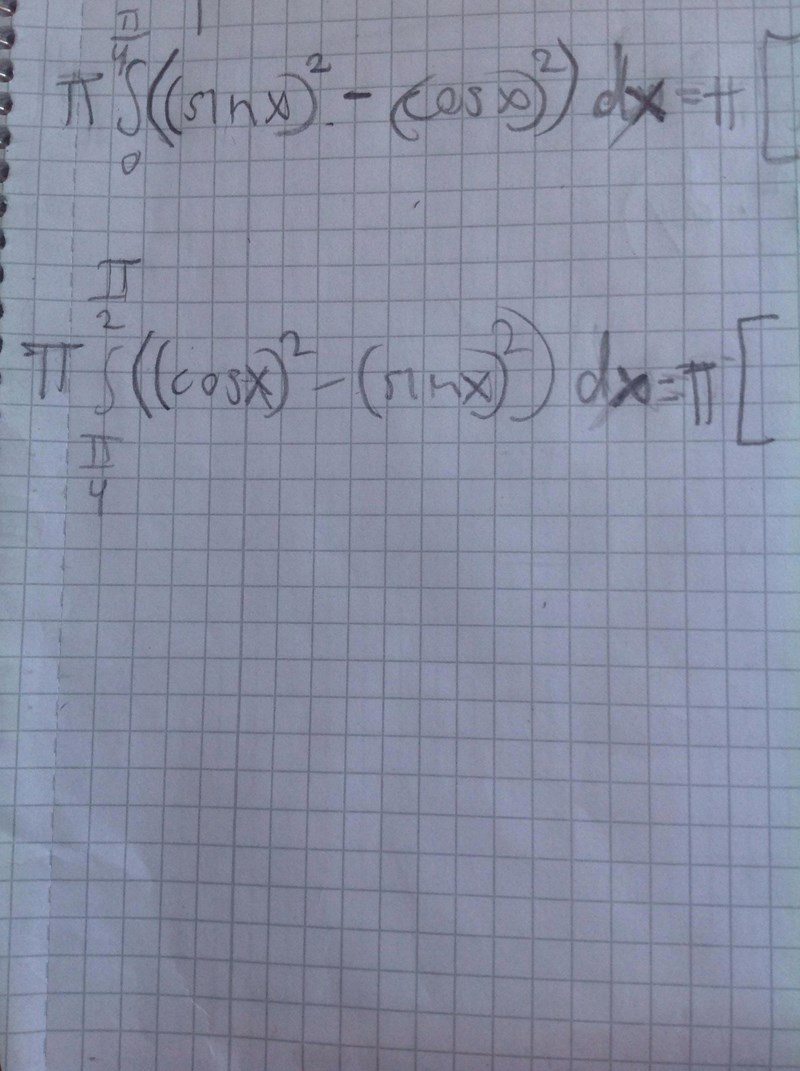 π ∫₀^(π/4) ((sinx)² - (cosx)²) dx = π [
π ∫_(π/4)^(π/2) ((cosx)² - (sinx)²) dx = π [